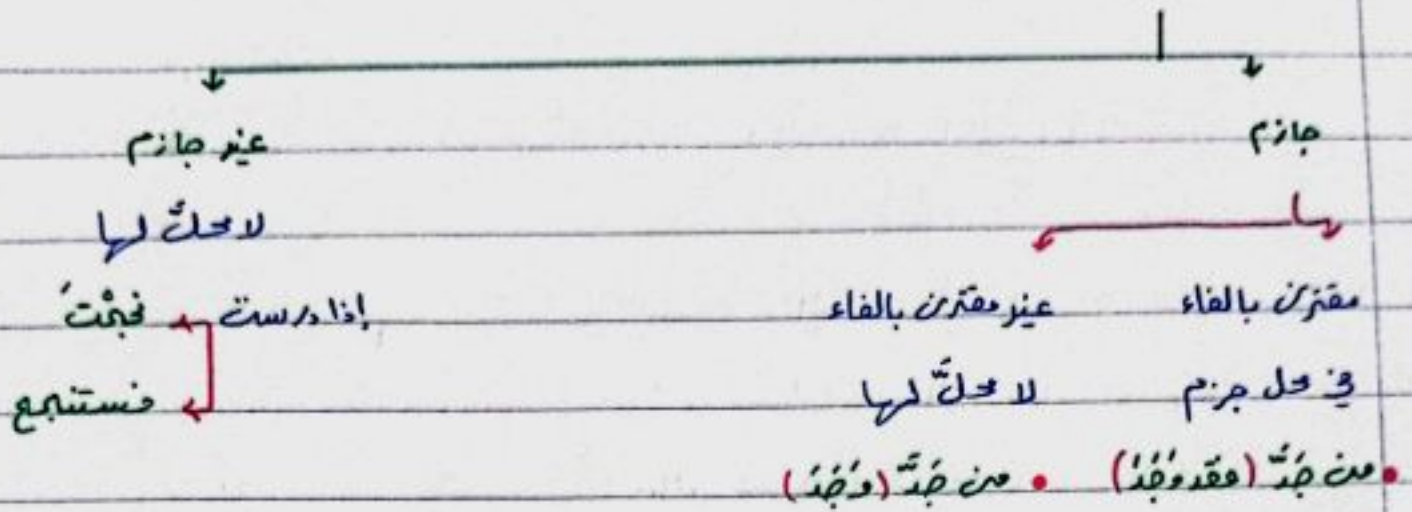 جازم
غير جازم
لا محلّ لها
مقترن بالفاء
غير مقترن بالفاء
إذا درست
نجحْتَ
في محل جزم
لا محلّ لها
فستنجح
• من جَدَّ (فقد وَجَدَ)
• من جَدَّ (وَجَدَ)